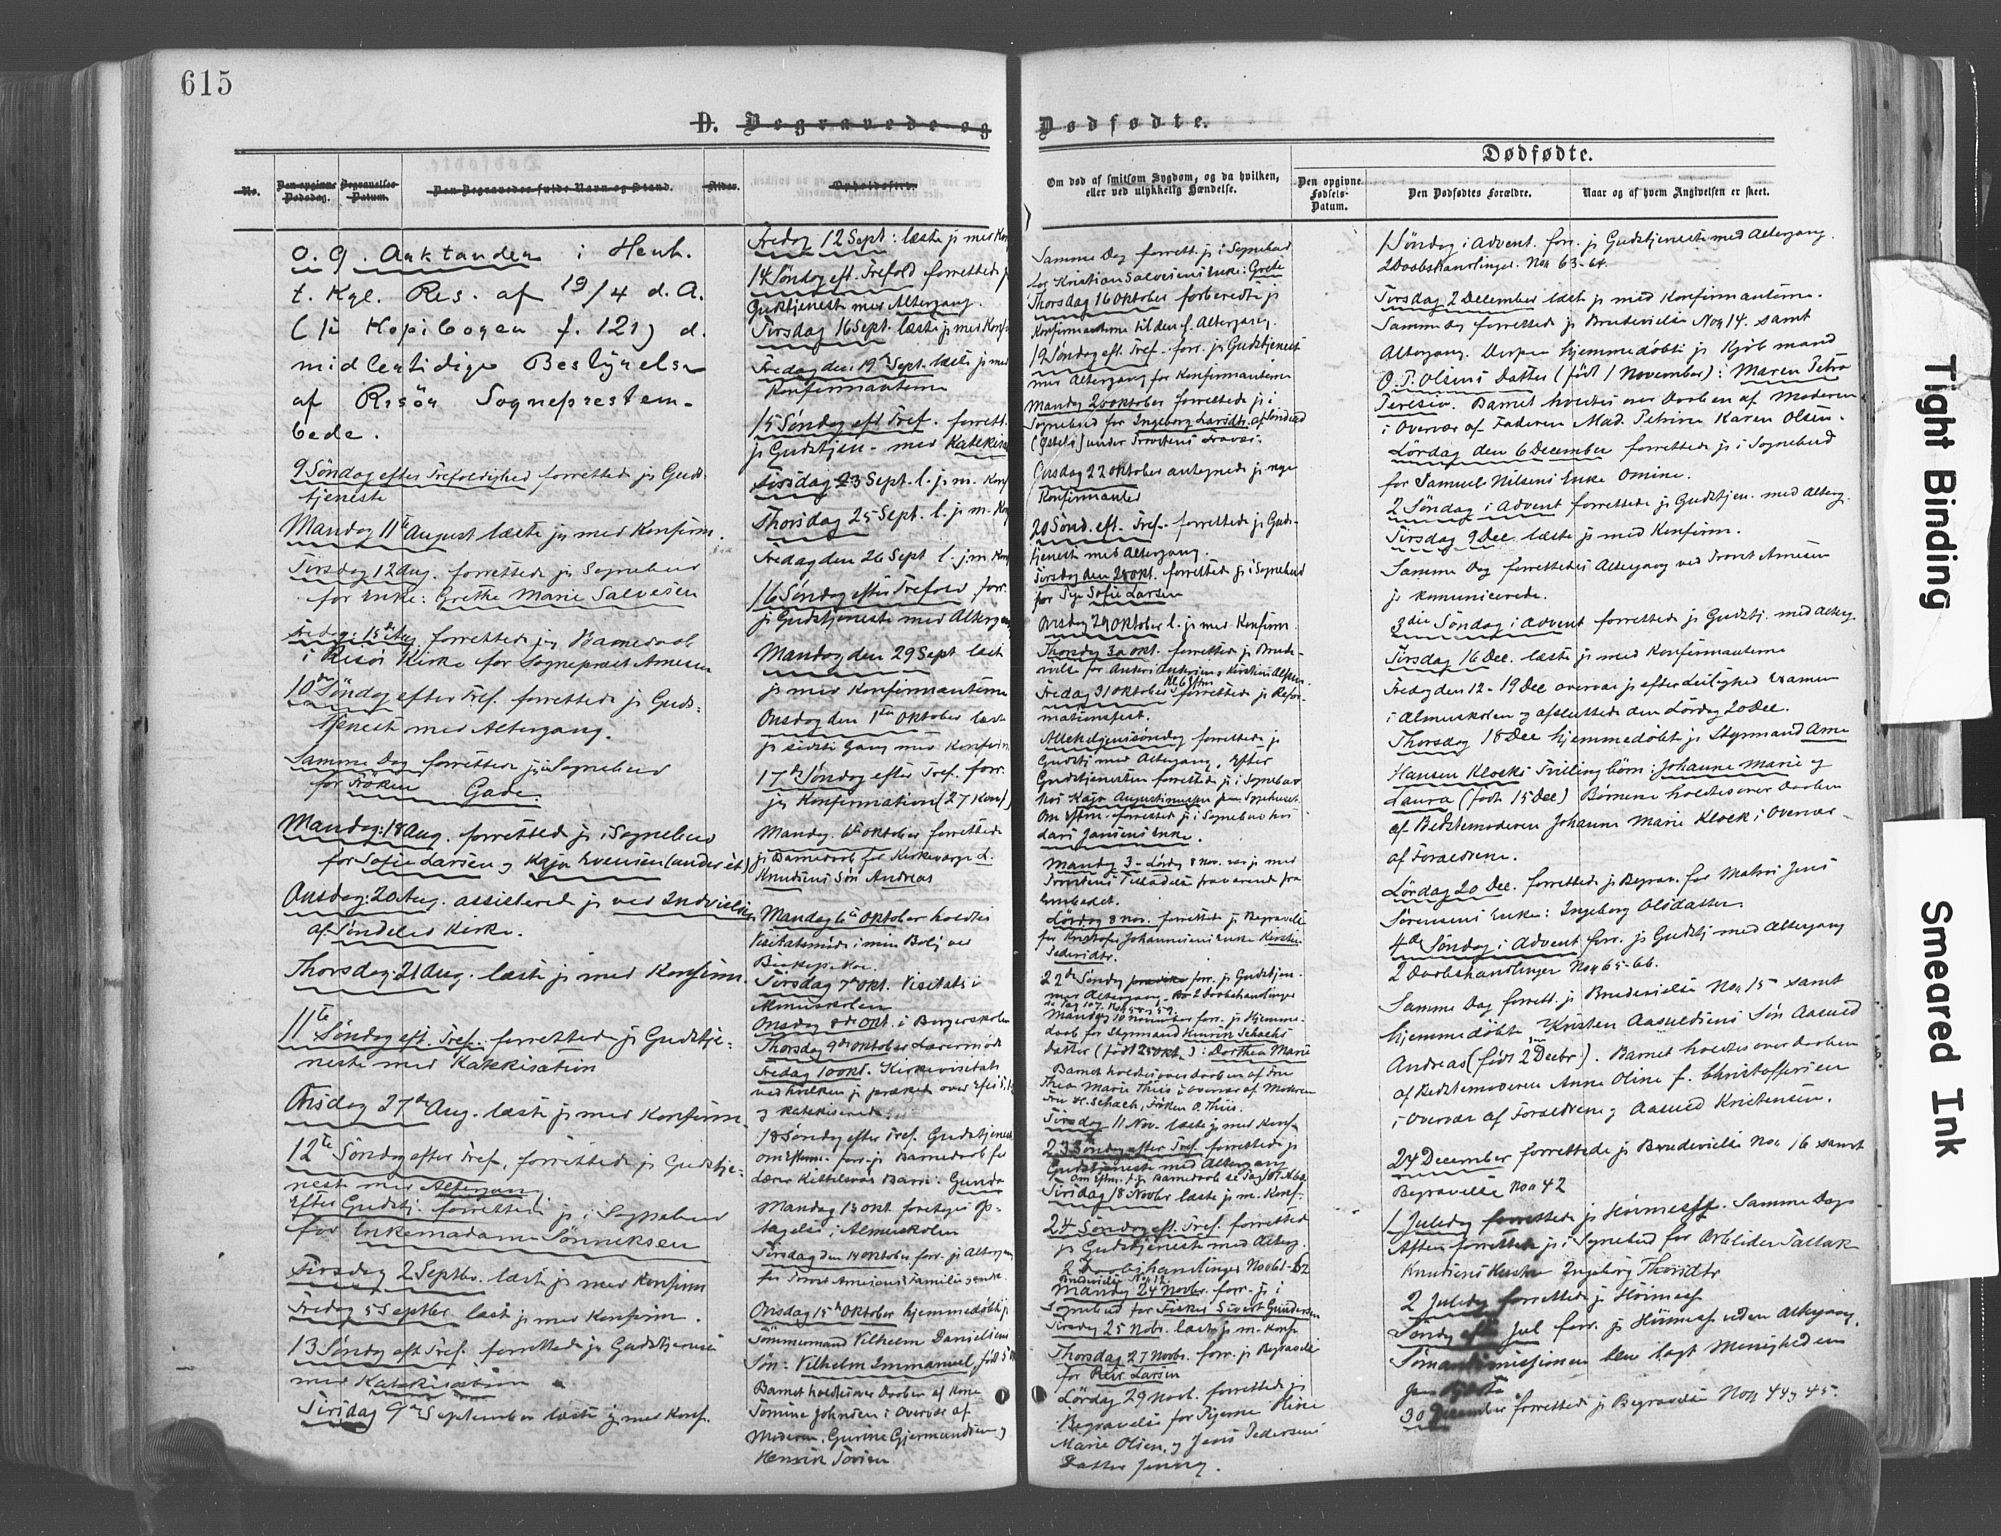 615
D. Begravede og
Dødfødte.
No.
Den opgivne Dødsdag.
Begravelses-Datum.
Den Begravedes fulde Navn og Stand.
Alder.
Opholdssted.
Om død af smitsom Sygdom, og da hvilken,
eller ved ulykkelig Hændelse.
Dødfødte.
Den opgivne
Fødsels-
Datum.
Den Dødfødtes Forældre.
Naar og af hvem Angivelsen er skeet.
O. G. Auktanden i Henh.
t. Kgl. Res. af 19/4 d. A.
Kopibogen f. 121) d.
midlertidige Bestyrelse
af Risør Sogneprestem-
bede.
9 Søndag efter Trefoldighed forrettede jg Guds-
tjeneste
Mandag 11te August læste jg med Konfirm.
Tirsdag 12 Aug. forrettede jg Sognebud
for Enke: Grethe Marie Salvesen
Fredag 15de Aug. forrettede jeg Barnedaab
i Risør Kirke for Sogneprest Arnesen
10de Søndag efter Tref. forrettede jg Guds-
tjenest med Altergang.
Samme Dag forrettede jg Sognebud
for Frøken Gade.
Mandag 18 Aug. forrettede jg i Sognebud
for Sofie Larsen og Kaja Evensen (under ét)
Onsdag 20 Aug. assisterede jg ved Indvielsen
af Søndeleds Kirke.
Thorsdag 21 Aug. læste jg med Konfirm.
11te Søndag eft. Tref. forrettede jg Gudstje-
neste med Katekisation
Onsdag 27de Aug. læste jg med Konfirm.
12te Søndag efter Tref. forrettede jg Gudstje-
neste med Altergan
Efter Gudstj. forrettede jg i Sognebud
for Enkemadam Sønniksen
Tirsdag 2 Septbr. læste jg med Konfirm
Fredag 5 Septbr læst jg med Konfirm.
13 Søndag eft Tref. forrettede jg Gudstjeneste
med Katekisation
Tirsdag 9de September læste jg med Konf.
Fredag 12 Sept: læste jg med Kon
14 Søndag eft. Trefold forrettede j
Gudstjenest med Altergang.
Tirsdag 16 Sept. læste jg med Konf
Fredag den 19de Sept. læste jg med
Konfirmanterne
15 Søndag eft Tref. forrett.
jg Gudstjen- med Katekisa
Tirsdag 23 Sept. l. jg m. Konf
Thorsdag 25 Sept. l. jg m. Kon
Fredag den 26 Sept l. jg m. Kon
16 Søndag efter Trefold. forr.
jg Gudstjeneste med Altergang
Mandag den 29 Sept læst
jg med Konfirmanterne
Onsdag den 1ste Oktober læste
jg sidste Gang med Konfirm
17de Søndag efter Tref. forr.
jeg Konfirmation (27 Konf)
Mandag 6te Oktober forrettede
jg Barnedaab for Kirkeværge L.
Knudsens Søn Andreas
Mandag 6te Oktober holdtes
Visitatsmøde i min Bolig ved
Biskop Moe.
Tirsdag 7de Okt. Visitats i
Almuskolen
Onsdag 8de Okt. i Borgerskolen
Thorsdag 9de Oktober Lærermøde
Fredag 10 Okt. Kirkevisitats
ved hvilken jg prækede over Efes
og katekiserede.
18 Søndag efter Tref. Gudstjenest
om Eftm. forr. jg Barnedaab for
Lærer Kittelsens Barn: Gunda
Mandag 13 Okt foretoges Op-
tagelse i Almuskolen
Tirsdag den 14 Oktober forr. jg Altergang
for Provst Arnesens Familie
Onsdag 15de Oktober hjemmedøbt jg
Tømmermand Vilhelm Danielsens
Søn: Vilhelm Immanuel, født 5
Barnet holdtes over Daaben af Kone
Tomine Johnsen i Overvær af
Moderen, Gurine Gjermundsen og
Henrik Tovsen
Samme Dag forrett. jg i Sognebud
hos Kristian Salvesens Enke: Grete
Thorsdag 16 Oktober forberedte jg
Konfirmanterne til den f. Altergang.
19 Søndag eft. Tref. forr. jg Gudstjenest
med Altergang for Konfirmanterne
Mandag 20 Oktober forrettede jg i
Sognebud for Ingeborg Larsdtr. af Sønderled
(Gjeld) under Provstens Fravær.
Onsdag 22 Oktober antegnede jg nye
Konfirmanter
20 Sønd. eft. Tref. forrettede jg Guds-
tjenest med Altergang.
Tirsdag den 28 Okt. forrettede jg i Sognebud
for Syge Sofie Larsen
Onsdag 29 Oktober l. jg med Konfirm
Thorsdag 30 Okt. forrettede jg Brude-
Fredag 31 Oktober Kl. 6 Eftm. forrettede jg Refor-
mationsfest.
Allehelgenssøndag forrettede jg
Gudstj med Altergang, Efter
Gudstjenesten forrettede jg i Sognebud
hos Kaja Augustinussen
Om Eftm. forrettede jg i Sognebud hos
Lars Jansens Enke.
Mandag 3- Lørdag 8 Nov. var jg med
Provstens Tilladelse fraværende fra
Embedet.
Lørdag 8 Nov. forrettede jg Begravelse
for Kristofer Johannesens Enke Kirsten
Pedersdtr.
22de Søndag forr. jg Gudstjen.
med Altergang 2 Daabshandlinger
Mandag 10 November forr. jg Hjemme-
daab for Styrmand Henrik Schachs
Datter (født 25 Okt.): Dorthea Marie
Barnet holdtes over daaben af Fru
Thea Marie Thiis i Overvær af Moderen
Fru H. Schach, Frøken O. Thiis.
Tirsdag 11 Nov. læste jg med Konf.
23 Søndag efter Tref. forrettede jg
Gudstjeneste med Altergang
Tirsdag 18 Novbr læste jg m. Konf.
24 Søndag eft. Tref. forrettede
jg Gudstjeneste med Alterg.
2 Daabshandlinger No 61-62
Brudevielse No 12.
Mandag 24 Novbr. forr. jg i
Sognebud for Fisker Sivert Gundersen
Tirsdag 25 Nobr. læste jg m. Konf.
Thorsdag 27 Novbr. forr. jg Begravelse
for Peder Larsen
Lørdag 29 Novb. forrettede jg
Begravelse for Pigerne Stine
Marie Olsen og Jens Pedersens
Datter Jenny.
1 Søndag i Advent. forr. jg Gudstjeneste med Altergang.
2 Daabshandlinger. No 63-64.
Tirsdag 2 December læst jg med Konfirmanterne.
Samme Dag forrettede jg Brudevielse No 14. samt
Altergang. Derpaa hjemmedøbte jg Kjøbmand
O. T. Olsens Datter (født 1 November): Maren Petra
Teresia. Barnet holdtes over Daaben af Moderen
i Overvær af Faderen Mad. Petrine Karen Olsen.
Lørdag den 6 December forrettede jg i Sognebud
for Samuel Nilsens Enke Omine.
2 Søndag i Advent forrettede jg Gudstjen. med Alterg.
Tirsdag 9 Dec. læste jg med Konfirm.
Samme Dag forrettedes Altergang ved Provst Arnesen
jg kommunicerede.
3die Søndag i Advent forrettede jg Gudstj. med Alterg.
Tirsdag 16 Dec. læste jg med Konfirmanterne
Fredag den 12-19 Dec overvar jg efter Leilighed Examen
i Almuskolen og afsluttede den Lørdag 20 Dec.
Thorsdag 18 Dec hjemmedøbt jg Styrmand Arne
Hansen Klocks Tvillingbørn: Johanne Marie og
Laura (født 15 Dec) Børnene holdtes over Daaben
af Bedstemoderen Johanne Marie Klock i Overvær
af Forældrene.
Lørdag 20 Dec. forrettede jg Begrav. for Matros Jens
Sørensens Enke: Ingeborg Olsdatter
4de Søndag i Advent forr. jg Gudstj med Altergang
2 Daabshandlinger No 65-66.
Samme Dag forrett. jg Brudevielse No 15 samt
hjemmedøbt Kristen Aasuldsens Søn Aasmund
Andreas (født 2den Decbr). Barnet holdtes over Daaben
af Bedstemoderen Anne Oline f. Christoffersen
i Overvær af Forældrene og Aasmund Kristensen.
24 December forrettede jg Brudevielse No 16 samt
Begravelse No 42
1 Juledag forrettede jg Høimesse. Samme Dags
Aften forrettede jg i Sognebud for Arbeider Tallak
Knudsens Hustru Ingeborg Thorsdtr
2 Juledag forrettede jg Høimesse
Søndag efter Jul forr. jg Høimesse uden Altergang.
Sømandsmissionen blev lagt Menigheden
paa Hjerte
30 December forrettede jg Begravelse No 44 og 45.
Tight Binding
Smeared Ink